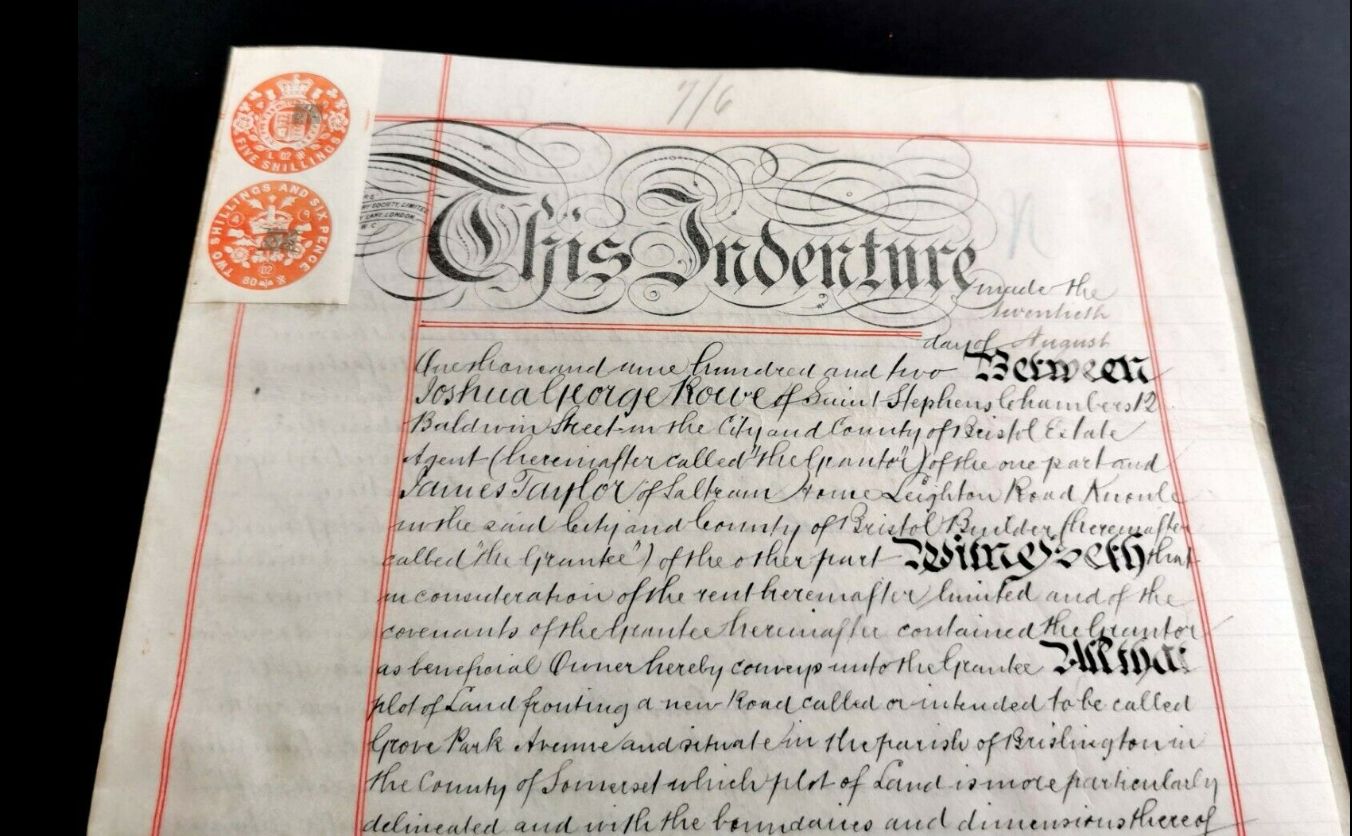 7/6
FIVE SHILLINGS
TWO SHILLINGS AND SIX PENCE
02
SOCIETY, LIMITED
LANE, LONDON
This Indenture made the
twentieth
day of August
One thousand nine hundred and two Between
Joshua George Rowe of Saint Stephens Chambers 12
Baldwin Street in the City and County of Bristol Estate
Agent (hereinafter called "the Grantor") of the one part and
James Taylor of Saltram Home Leighton Road Knowle
in the said City and County of Bristol Builder (hereinafter
called "the Grantee") of the other part Witnesseth that
in consideration of the rent hereinafter limited and of the
covenants of the Grantee hereinafter contained the Grantor
as beneficial Owner hereby conveys unto the Grantee All that
plot of Land fronting a new Road called or intended to be called
Grove Park Avenue and situate in the parish of Brislington in
the County of Somerset which plot of Land is more particularly
delineated and with the boundaries and dimensions thereof